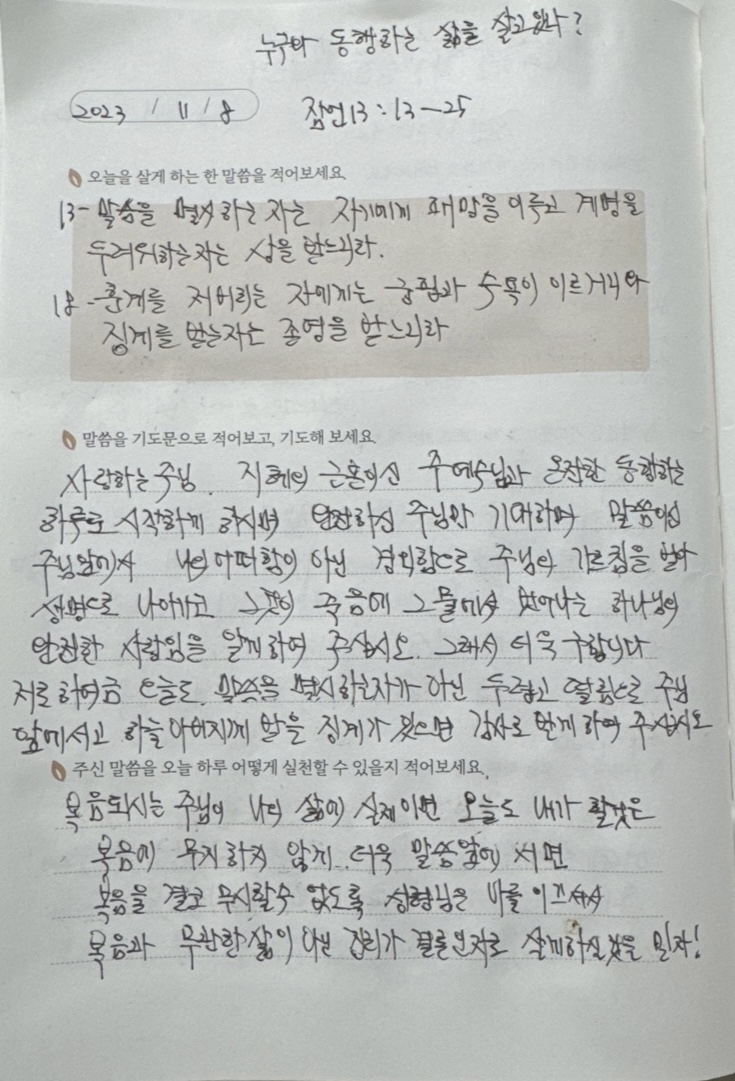 누구와 동행하는 삶을 살고있나?
2023 / 11 / 8 잠언13:13-25
오늘을 살게 하는 한 말씀을 적어보세요.
13- 말씀을 멸시하는 자는 자기에게 패망을 이루고 계명을
두려워하는자는 상을 받느니라.
18 - 훈계를 저버리는 자에게는 궁핍과 수욕이 이르거니와
징계를 받는자는 존영을 받느니라
말씀을 기도문으로 적어보고, 기도해 보세요.
사랑하는 주님. 지혜의 근본이신 주 예수님과 온전한 동행하는
하루로 시작하게 하시며 완전하신 주님만 기대하며 말씀이신
주님앞에서 나의 어떠함이 아닌 경외함으로 주님의 가르침을 받아
생명으로 나아가고 그것이 죽음에 그물에서 벗어나는 하나님의
완전한 사랑임을 알게하여 주십시오. 그래서 더욱 구합니다
저로 하여금 오늘도 말씀을 멸시하는자가 아닌 두렵고 떨림으로 주님
앞에서고 하늘 아버지께 받을 징계가 있으면 감사로 받게 하여 주십시오
주신 말씀을 오늘 하루 어떻게 실천할 수 있을지 적어보세요.
복음되시는 주님이 나의 삶에 실제이면 오늘도 내가 할것은
복음에 무지하지 않게 더욱 말씀앞에 서면
복음을 결코 무시할수 없도록 성령님은 나를 이끄셔서
복음과 무관한 삶이 아닌 진리가 결론인자로 살게하실것을 믿자!